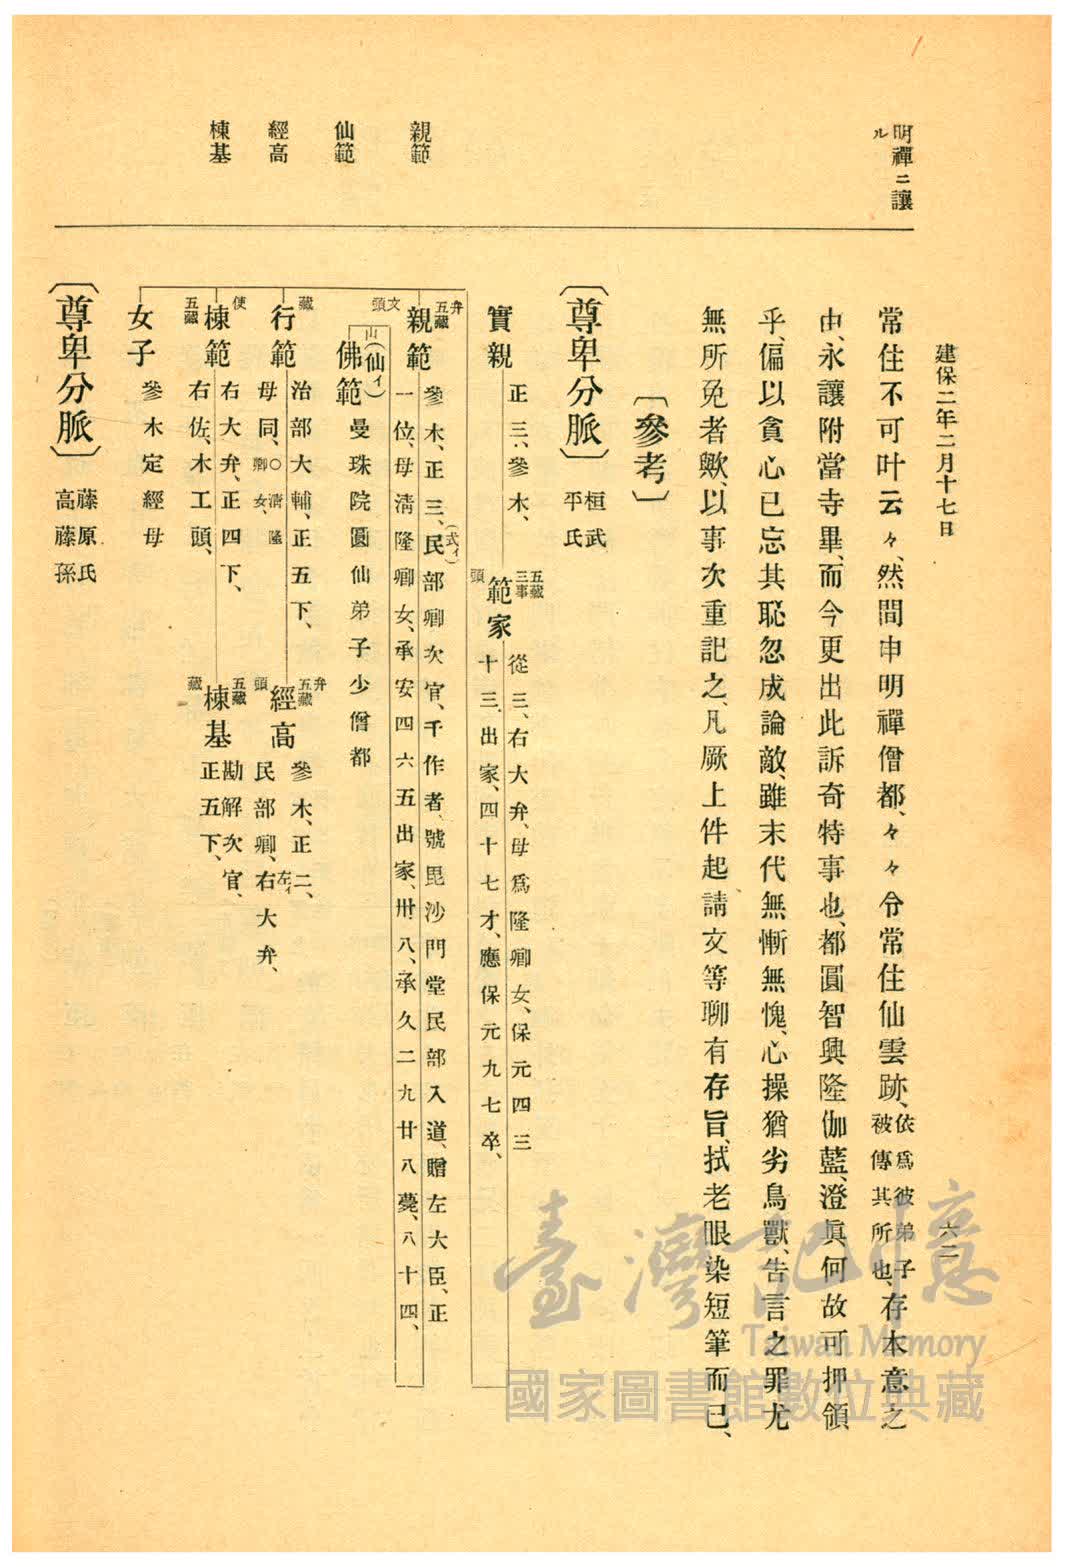 建保二年二月十七日
六二
明禪ニ讓
ル
常住不可叶云々、然間申明禪僧都、々々令常住仙雲跡、依爲彼弟子被傳其所也、存本意之
由、永讓附當寺畢、而今更出此訴奇特事也、都圓智興隆伽藍、澄眞何故可押領
乎、偏以貪心已忘其恥忽成論敵、雖末代無慚無愧、心操猶劣鳥獸、告言之罪尤
無所免者歟、以事次重記之、凡厥上件起請文等聊有存旨、拭老眼染短筆而已、
〔參考〕
〔尊卑分脈〕
桓武
平氏
實親
正三、參木、
五藏
三事
頭
範家
從三、右大弁、母爲隆卿女、保元四三
十三出家、四十七才、應保元九七卒、
親範
弁
五藏
文
頭
親範
參木、正三、民部卿次官、千作者、號毘沙門堂民部入道、贈左大臣、正
(式イ)
一位、母淸隆卿女、承安四六五出家、卅八、承久二九廿八薨、八十四、
仙範
山
(仙イ)
佛範
曼珠院圓仙弟子少僧都
藏
行範
治部大輔、正五下、
母同、○淸隆卿女、
經高
弁
五藏
頭
經高
參木、正二、
民部卿、右大弁、
左イ
使
五藏
棟範
右大弁、正四下、
右佐、木工頭、
棟基
五藏
藏
棟基
勘解次官、
正五下、
女子
參木定經母
〔尊卑分脈〕
藤原氏
高藤孫
臺灣記憶
Taiwan Memory
國家圖書館數位典藏